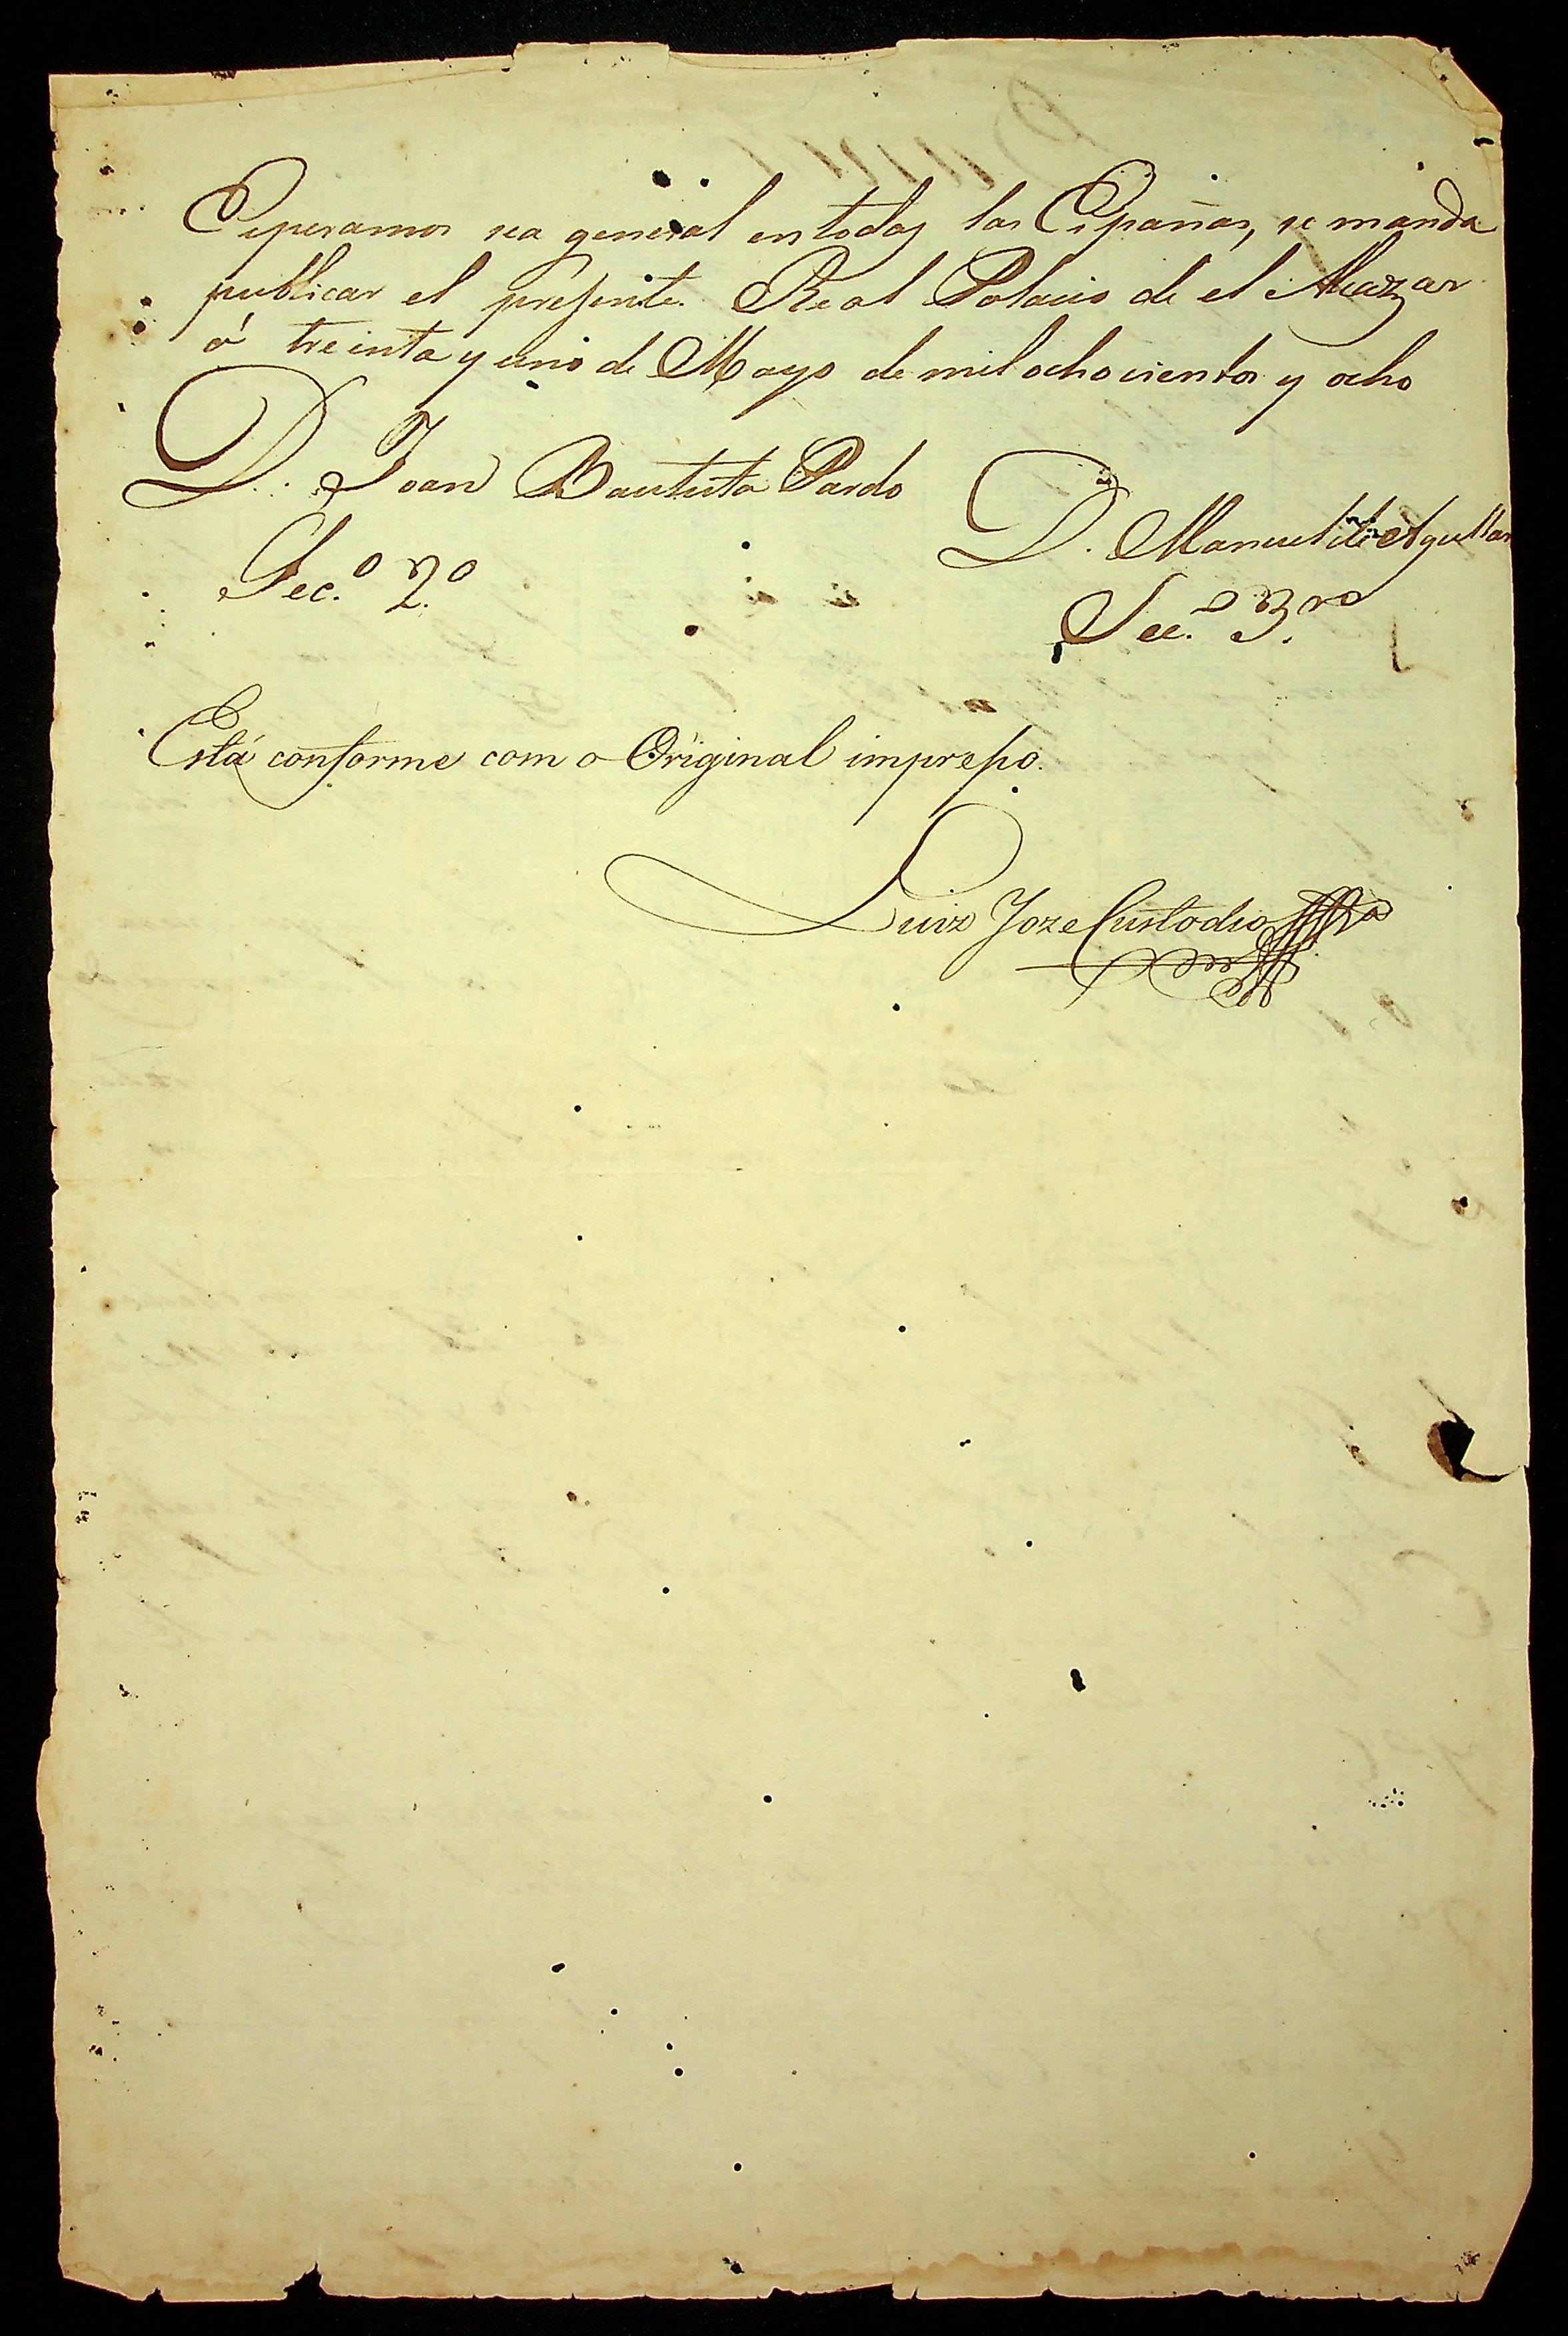 Esperamos sea general en todas las Españas, se manda
publicar el presente. Real Palacio de el Alcazar
á treinta y uno de Mayo de mil ochocientos y ocho
D. Joan Bautista Pardo
D. Manuel de Aguilar
Sec.o 2.o
Sec.o 3.ro
Está conforme com o Original impresso.
Luiz Joze Custodio